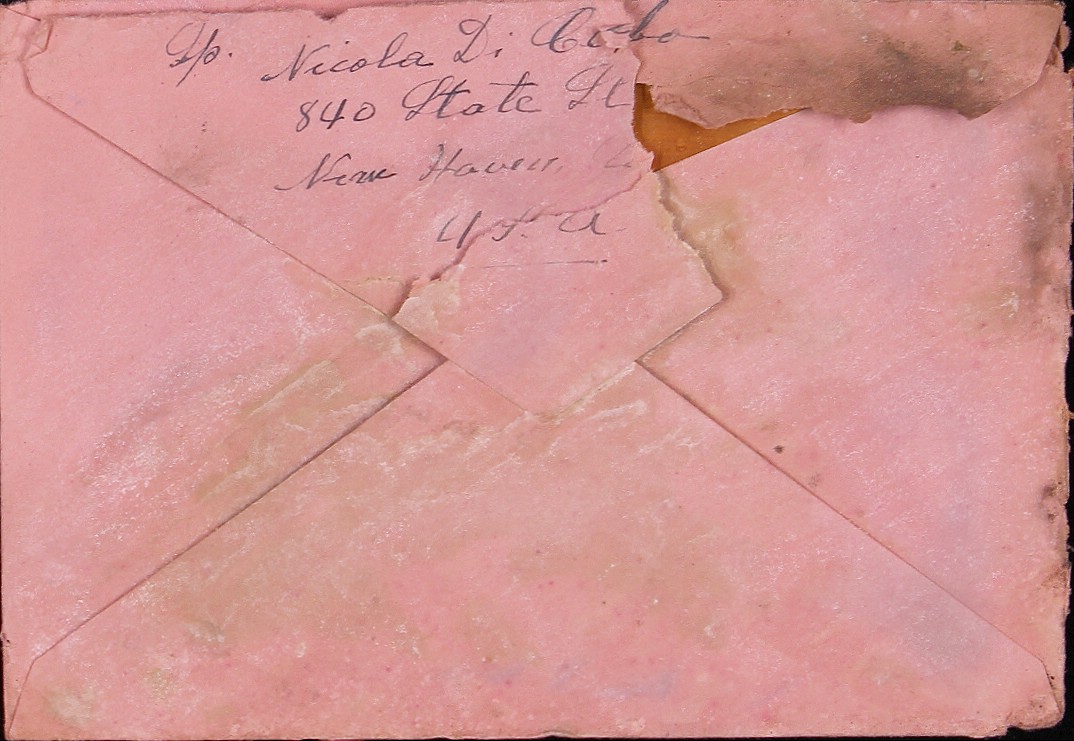 Sp. Nicola Di
840 State St
New Haven,
U.S. A.